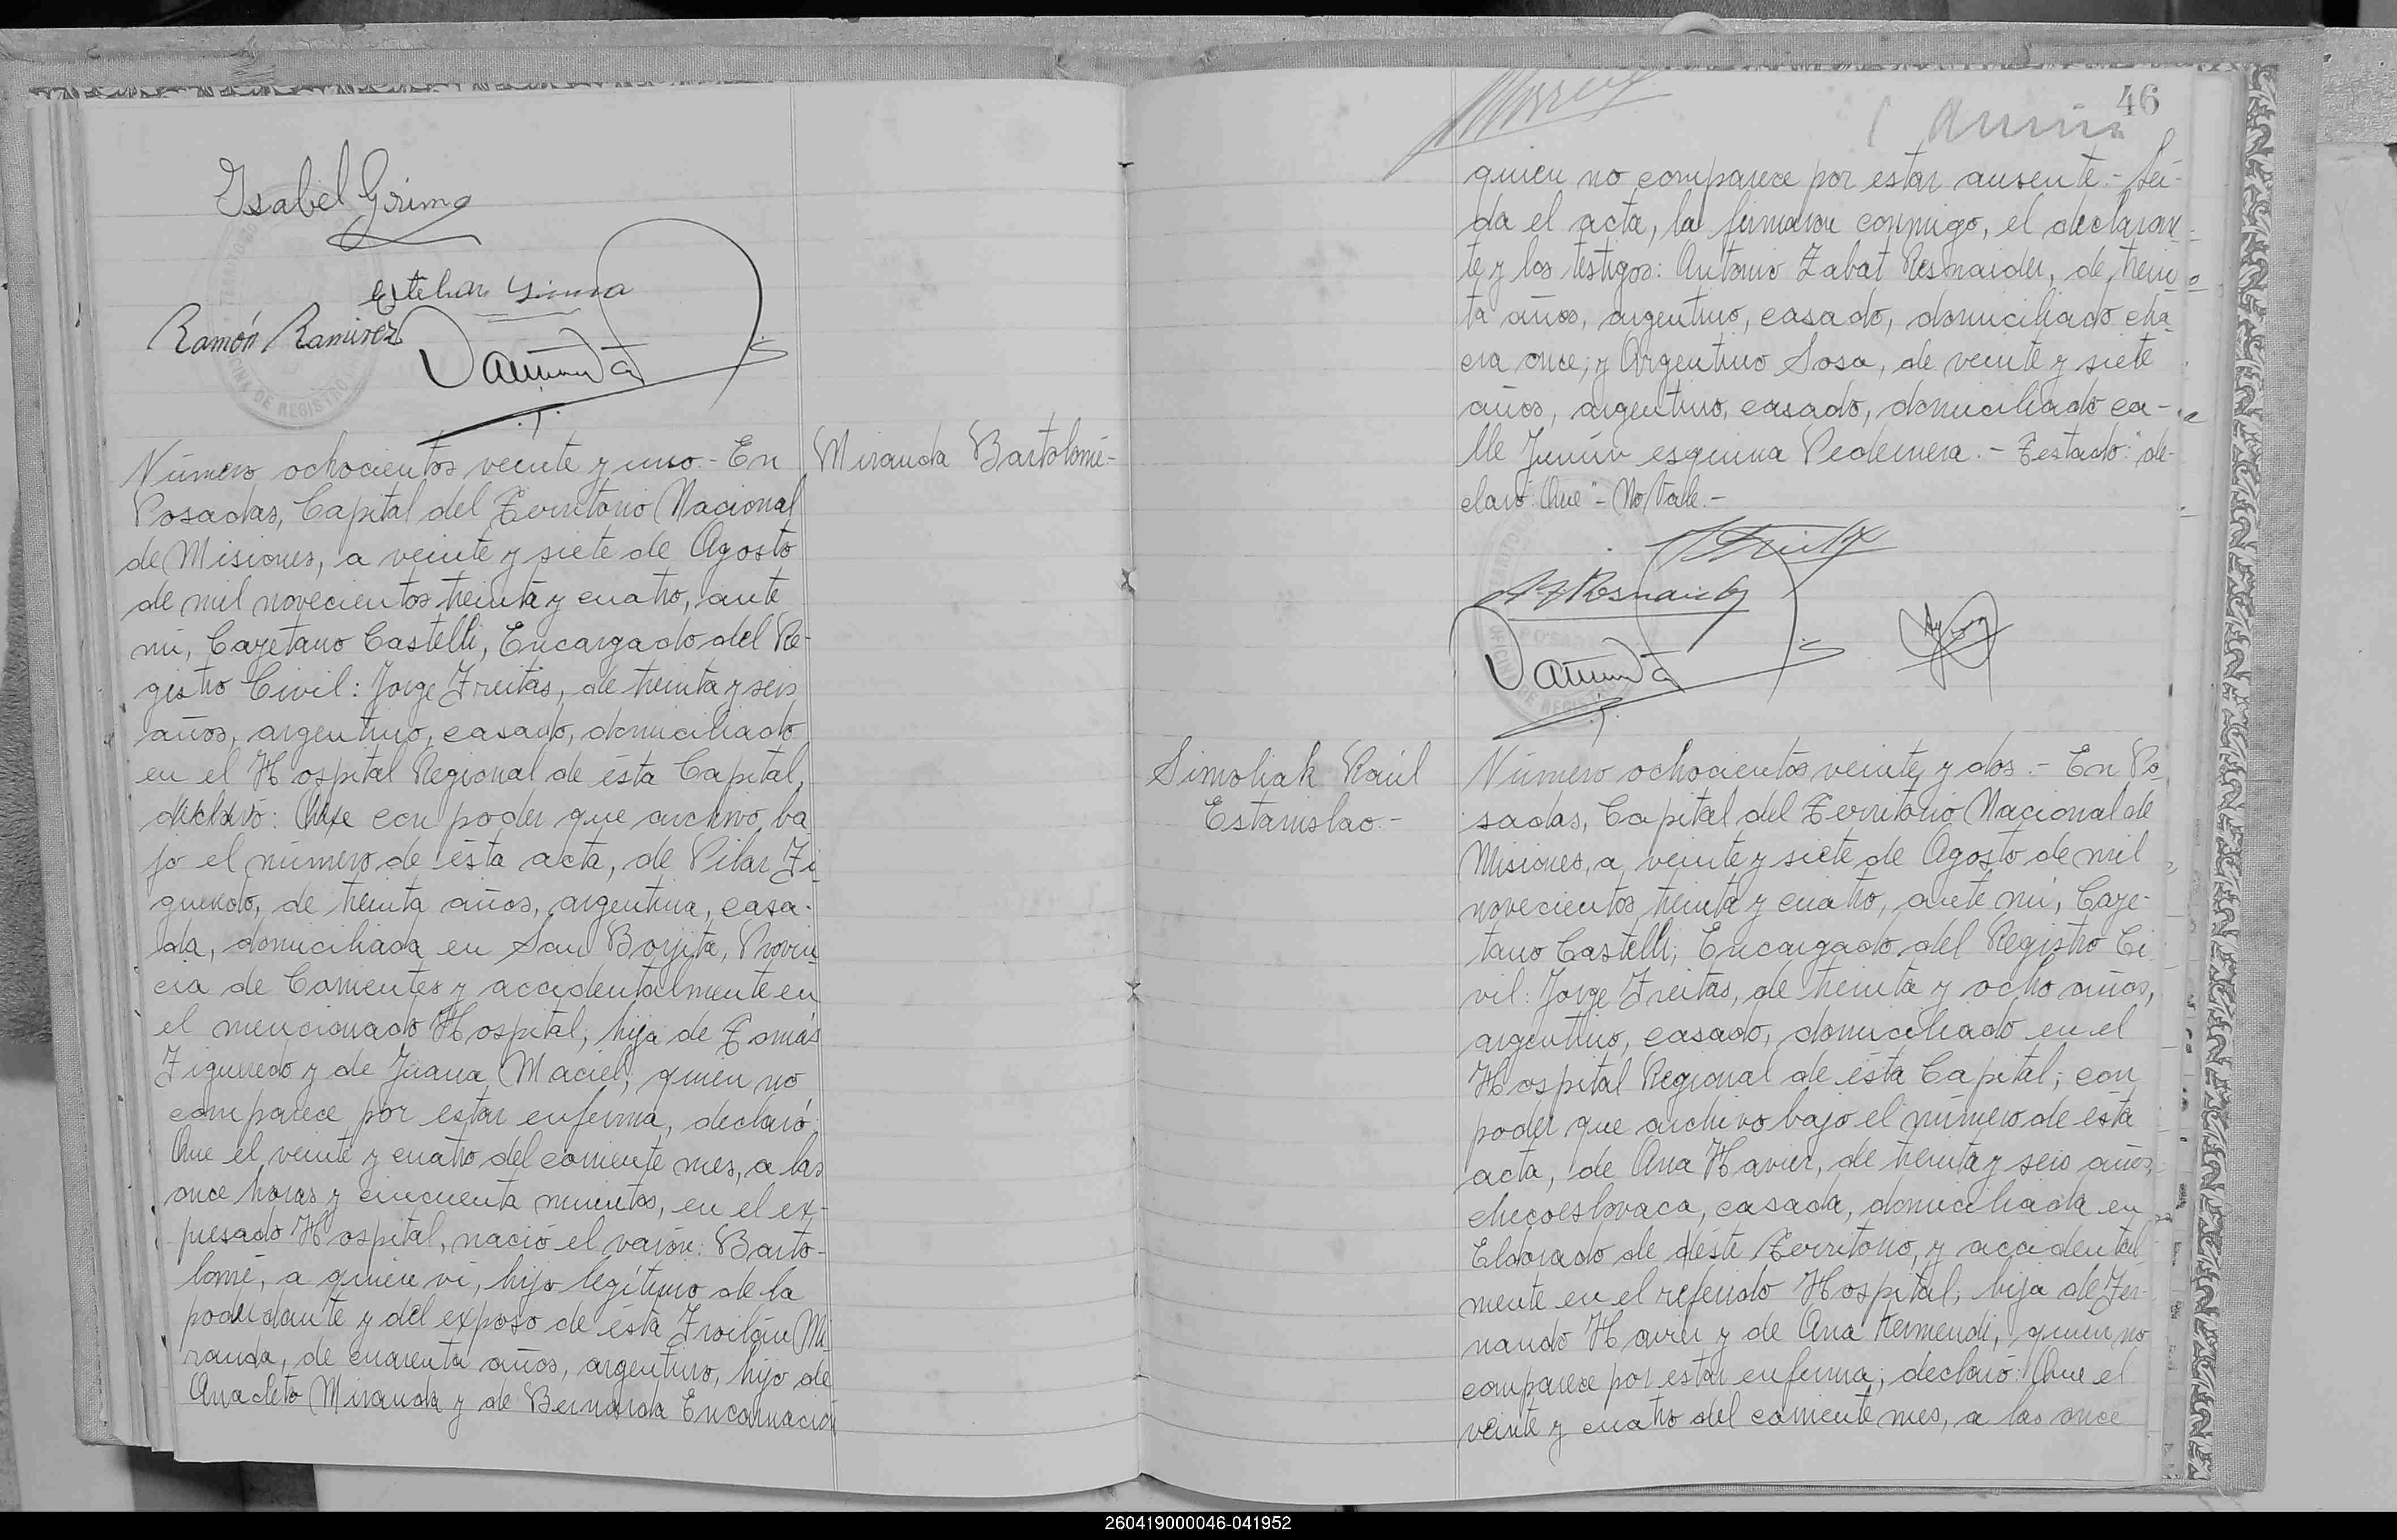 Isabel Grimo
Esteban
Ramón Ramirez
Número ochocientos veinte y uno.- En
Posadas, Capital del Territorio Nacional
de Misiones, a veinte y siete de Agosto
de mil novecientos treinta y cuatro, ante
mi, Cayetano Castelli, Encargado del Re-
gistro Civil: Jorge Freitas, de treinta y seis
años, argentino, casado, domiciliado
en el Hospital Regional de ésta Capital,
declaró: Que con poder que archivo ba
jo el número de ésta acta, de Pilar Fi
gueredo, de treinta años, argentina, casa-
da, domiciliada en San Borjita, Provin
cia de Corrientes y accidentalmente en
el mencionado Hospital; hija de Tomás
Figueredo y de Juana Maciel; quien no
comparece por estar enferma, declaró:
Que el veinte y cuatro del corriente mes, a las
once horas y cincuenta minutos, en el ex-
presado Hospital, nació el varón: Barto-
lomé, a quien vi, hijo legítimo de la
poderdante y del esposo de ésta Froilán Mi
randa, de cuarenta años, argentino, hijo de
Anacleto Miranda y de Bernarda Encarnación
Miranda Bartolomé-
46
quien no comparece por estar ausente.- Leí-
da el acta, la firmaron conmigo, el declaran-
te y los testigos: Antonio Zabat Resnaider, de trein
ta años, argentino, casado, domiciliado cha
cra once; y Argentino Sosa, de veinte y siete
años, argentino, casado, domiciliado ca-
lle Junín esquina Pedernera.- Testado: "de-
claró: Que"- No Vale.-
Simoliak Raúl
Estanislao.-
Número ochocientos veinte y dos.- En Po
sadas, Capital del Territorio Nacional de
Misiones, a veinte y siete de Agosto de mil
novecientos treinta y cuatro, ante mi, Caye-
tano Castelli; Encargado del Registro Ci
vil: Jorge Freitas, de treinta y ocho años,
argentino, casado, domiciliado en el
Hospital Regional de ésta Capital; con
poder que archivo bajo el número de ésta
acta, de Ana Havier, de treinta y seis años,
checoeslovaca, casada, domiciliada en
Eldorado de éste Territorio, y accidental
mente en el referido Hospital; hija de Fer-
nando Havier y de Ana Kermendi, quien no
comparece por estar enferma; declaró: Que el
veinte y cuatro del corriente mes, a las once
260419000046-041952